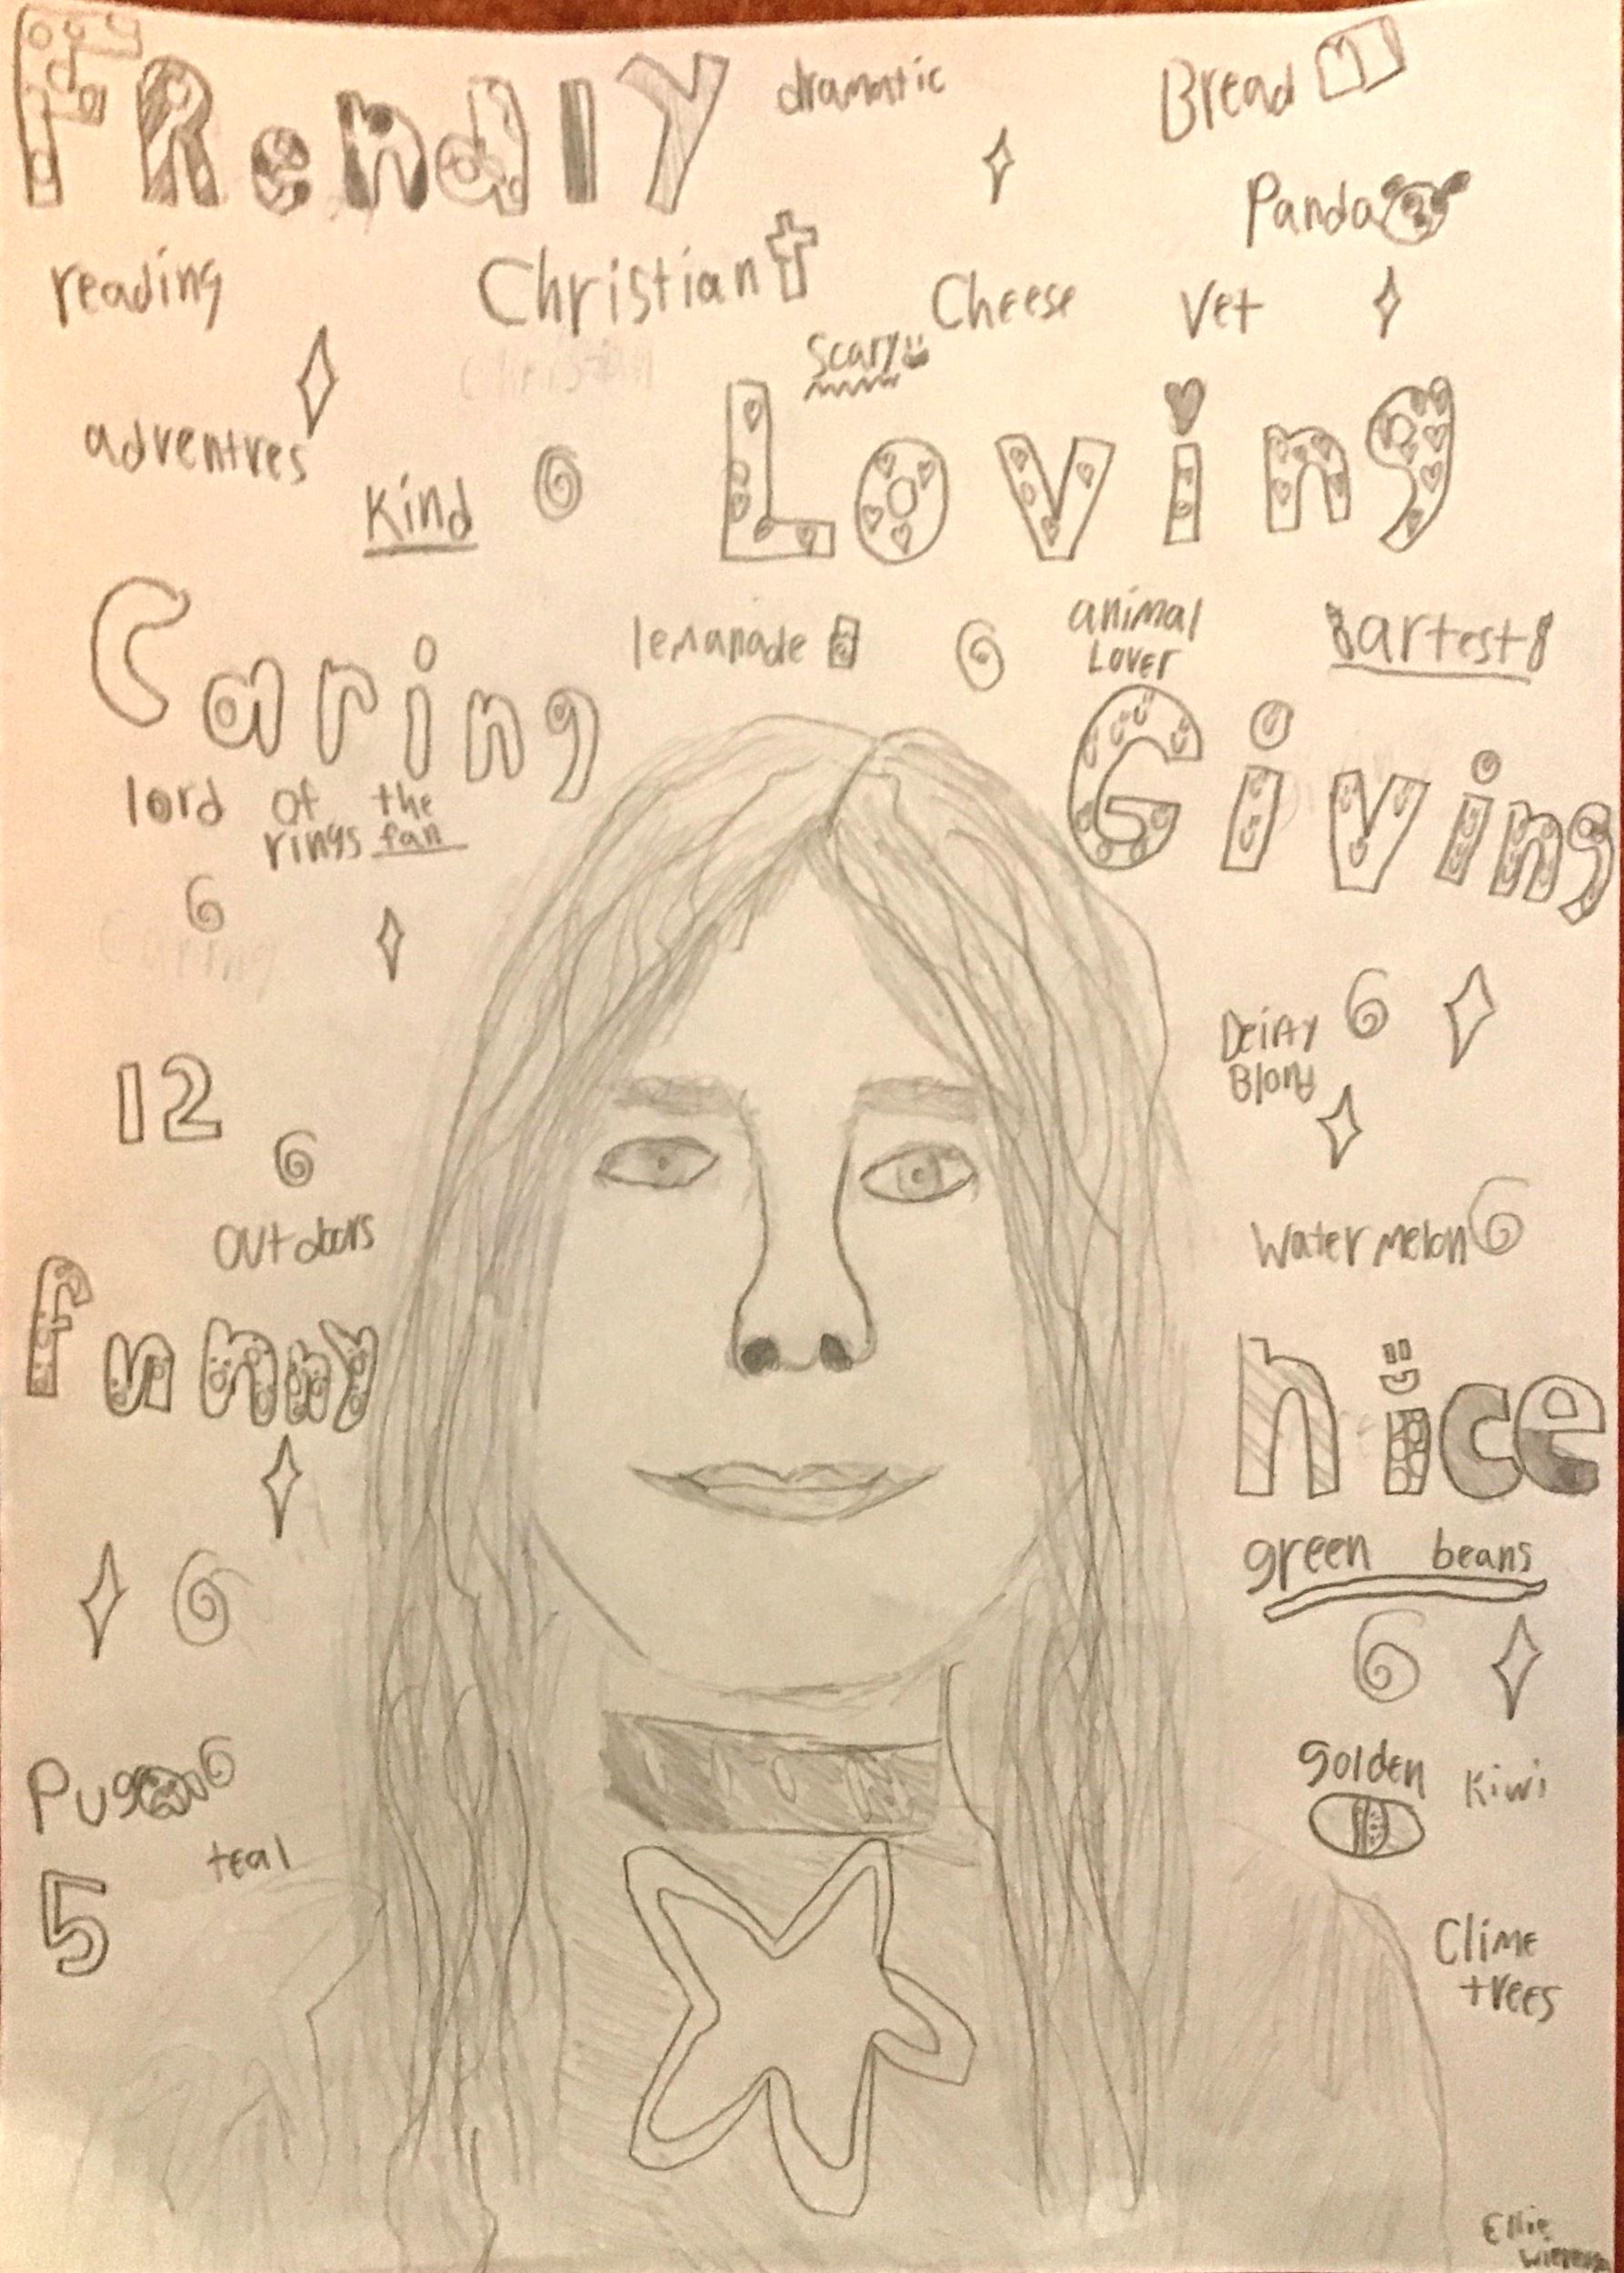 FRendly
dramatic
Bread
Panda
reading
Christian
Cheese
Vet
Christian
Scary
adventres
Kind
Loving
Caring
lemanade
animal
Lover
artest
Giving
lord of the
rings fan
Caring
Deirty
Blond
12
outdoors
Watermelon
Funny
nice
green beans
Pug
golden kiwi
teal
5
Clime
trees
Ellie